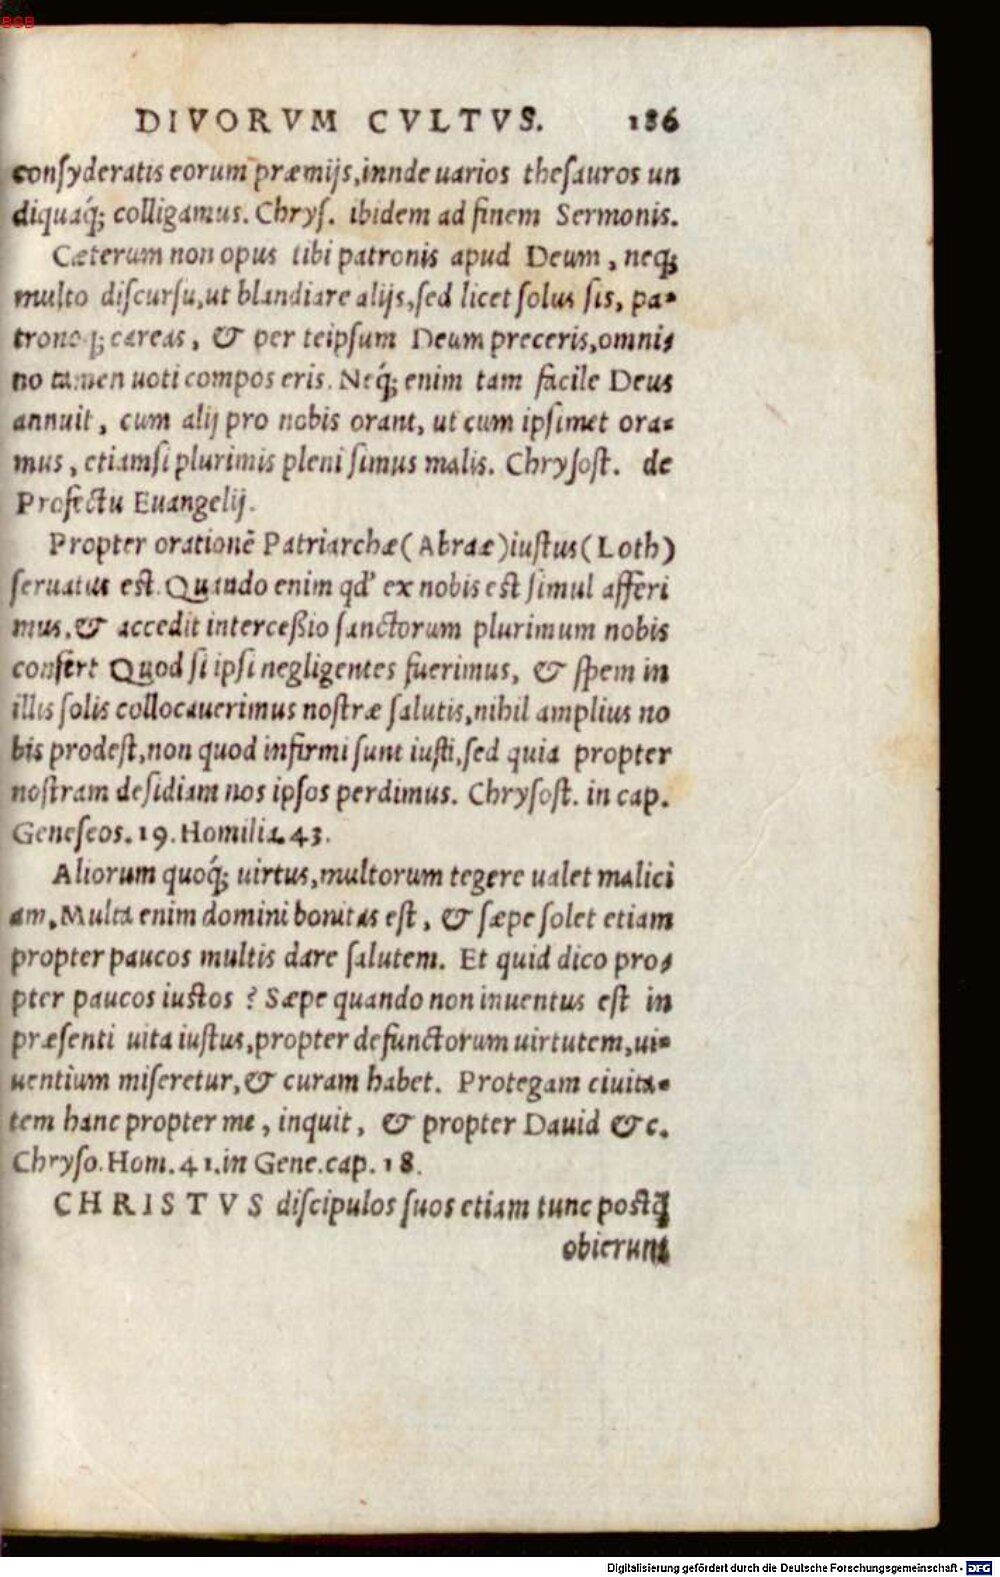 BSB
DIVORVM CVLTVS. 186
consyderatis eorum præmijs, innde uarios thesauros un
diquaq́; colligamus. Chrys. ibidem ad finem Sermonis.
Cæterum non opus tibi patronis apud Deum, neq;
multo discursu, ut blandiare alijs, sed licet solus sis, pa-
tronoq; careas, & per teipsum Deum preceris, omni-
no tamen uoti compos eris. Neq́; enim tam facile Deus
annuit, cum alij pro nobis orant, ut cum ipsimet ora-
mus, etiamsi plurimis pleni simus malis. Chrysost. de
Profectu Euangelij.
Propter orationē Patriarchæ (Abraæ) iustus (Loth)
seruatus est. Quando enim qd' ex nobis est simul afferi
mus, & accedit interceßio sanctorum plurimum nobis
confert Quod si ipsi negligentes fuerimus, & spem in
illis solis collocauerimus nostræ salutis, nihil amplius no
bis prodest, non quod infirmi sunt iusti, sed quia propter
nostram desidiam nos ipsos perdimus. Chrysost. in cap.
Geneseos. 19. Homilia. 43.
Aliorum quoq́; uirtus, multorum tegere ualet malici
am. Multa enim domini bonitas est, & sæpe solet etiam
propter paucos multis dare salutem. Et quid dico pro-
pter paucos iustos? Sæpe quando non inuentus est in
præsenti uita iustus, propter defunctorum uirtutem, ui-
uentium miseretur, & curam habet. Protegam ciuita-
tem hanc propter me, inquit, & propter Dauid &c.
Chryso. Hom. 41. in Gene. cap. 18.
CHRISTVS discipulos suos etiam tunc postq̃
obierunt
Digitalisierung gefördert durch die Deutsche Forschungsgemeinschaft - DFG